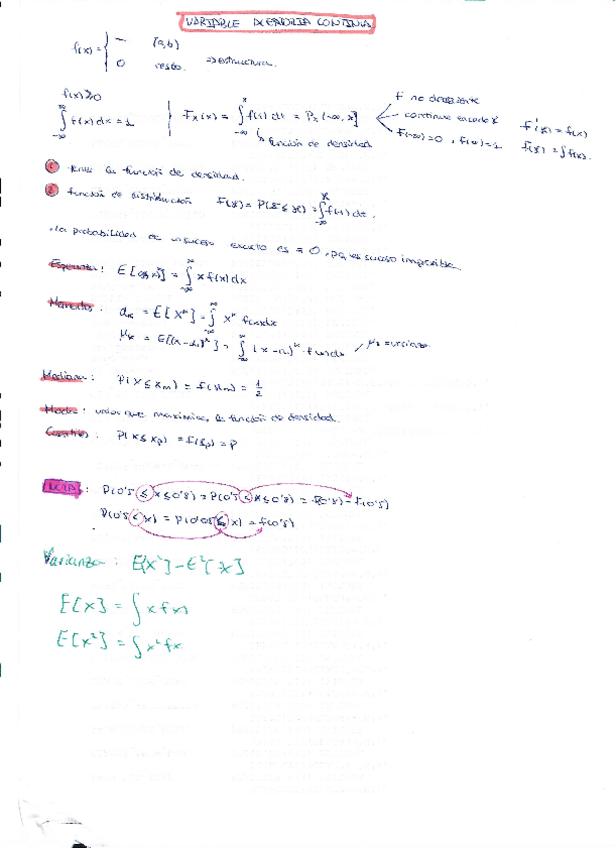 VARIABLE ALEATORIA CONTINUA
f(x) = { — (a,b)
0 resto. ⇒ estructura.
f(x) ≥ 0
∫_{-∞}^{∞} f(x) dx = 1
F_x(x) = ∫_{-∞}^{x} f(t) dt = P_x (-∞, x]
↳ función de densidad
F no decreciente
continua en cada x
F(-∞) = 0, F(∞) = 1
F'(x) = f(x)
F(x) = ∫ f(x).
① la función de densidad.
② función de distribución F(x) = P(X ≤ x) = ∫_{-∞}^{x} f(t) dt.
· la probabilidad de un suceso exacto es = 0, pq es suceso imposible.
Esperanza: E[x] = ∫_{-∞}^{∞} x f(x) dx
Momentos: α_k = E[X^k] = ∫_{-∞}^{∞} x^k f(x) dx
μ_k = E[(x-α_1)^k] = ∫_{-∞}^{∞} (x-α_1)^k · f(x) dx / μ_2 = varianza
Mediana: P(X ≤ x_m) = F(x_m) = 1/2
Moda: valor que maximiza la función de densidad.
Cuantiles: P(X ≤ x_p) = F(x_p) = p
NOTA: P(0'5 ≤ x ≤ 0'8) = P(0'5 < x ≤ 0'8) = F(0'8) - F(0'5)
P(0'5 < x) = P(0'5 ≤ x) = F(0'5)
Varianza: E[x²] - E²[x]
E[x] = ∫ x fx
E[x²] = ∫ x² fx